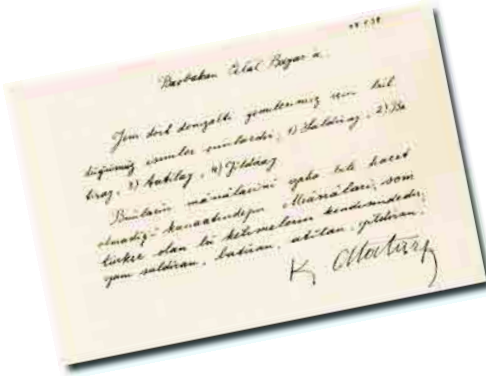 Başbakan Celal Bayar'a,
Yeni dört denizaltı gemilerimiz için bul
duğumuz isimler şunlardır; 1) Saldıray, 2) Ba
tıray, 3) Atılay, 4) Yıldıray
Bunların mânâlarını izaha bile hacet
olmadığı kanaatındayım. Mânâları, som
türkçe olan bu kelimelerin kendisindedir;
yani saldıran, batıran, atılan, yıldıran.
K. Atatürk